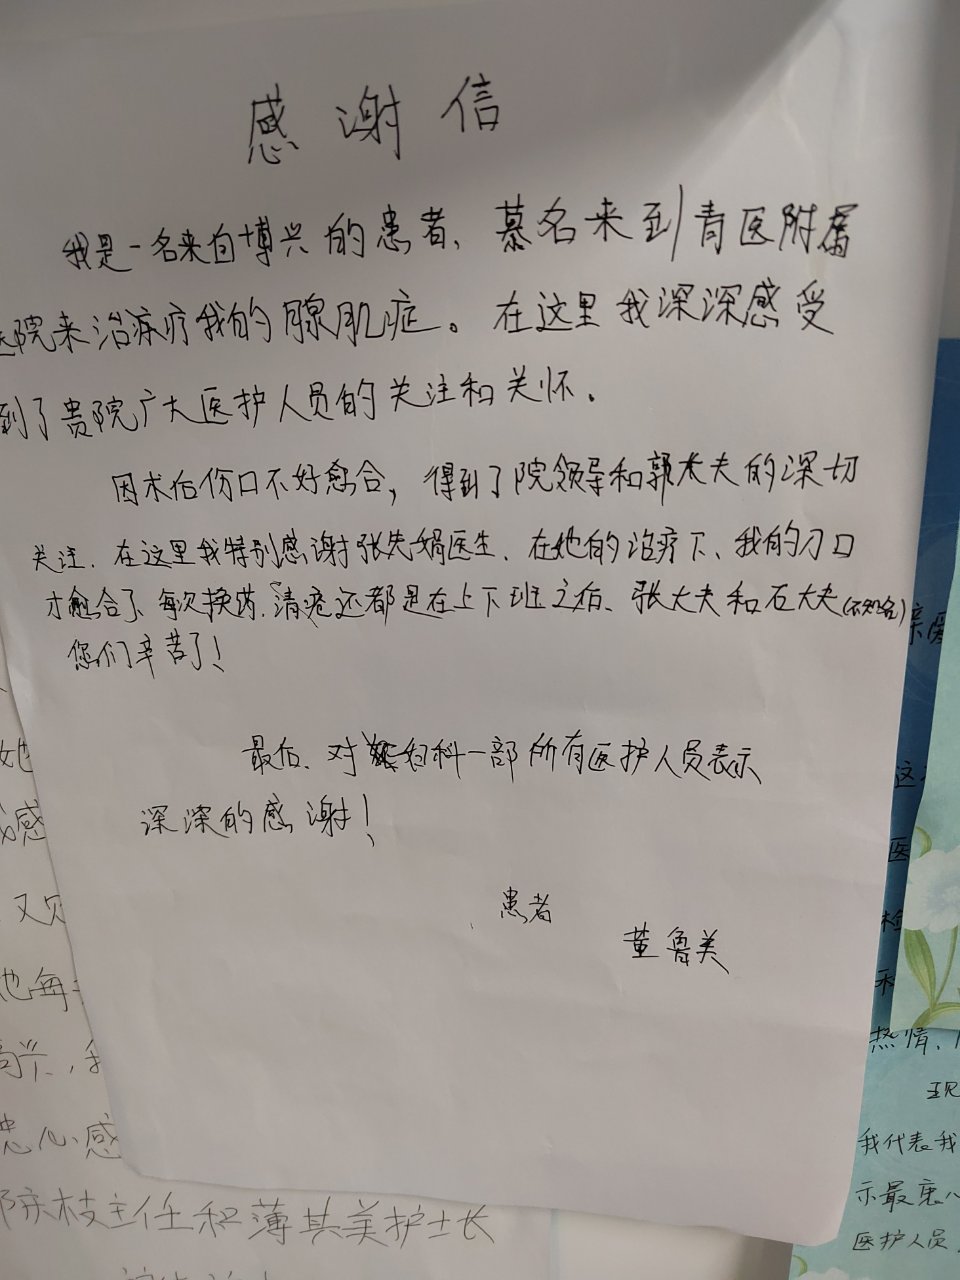 感谢信
我是一名来自博兴的患者、慕名来到青医附属
医院来治疗我的腺肌症。在这里我深深感受
到了贵院广大医护人员的关注和关怀。
因术后伤口不好愈合，得到了院领导和郭大夫的深切
关注、在这里我特别感谢张先娟医生、在她的治疗下、我的刀口
才愈合了、每次换药、清疮还都是在上下班之后、张大夫和石大夫(不知名)
您们辛苦了！
最后、对妇科一部所有医护人员表示
深深的感谢！
患者
董鲁美
她
感
又
他每
高兴，我
患心感
枝主任和薄其美护士长
亲爱
这
医
检
热情、
现
我代表我
示最衷心
医护人员